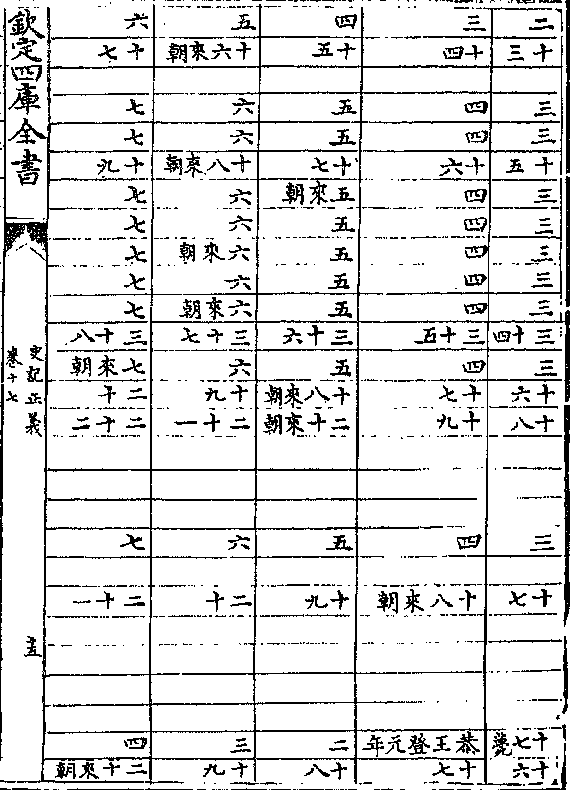 二 三 四 五 六
十三 十四 十五 十六來朝 十七
三 四 五 六 七
三 四 五 六 七
十五 十六 十七 十八來朝 十九
三 四 五來朝 六 七
三 四 五 六 七
三 四 五 六來朝 七
三 四 五 六 七
三 四 五 六來朝 七
三十四 三十五 三十六 三十七 三十八
三 四 五 六 七來朝
十六 十七 十八來朝 十九 二十
十八 十九 二十來朝 二十一 二十二
三 四 五 六 七
十七 十八來朝 十九 二十 二十一
十七薨 恭王登元年 二 三 四
十六 十七 十八 十九 二十來朝
欽定四庫全書
史記正義
卷十七
十五